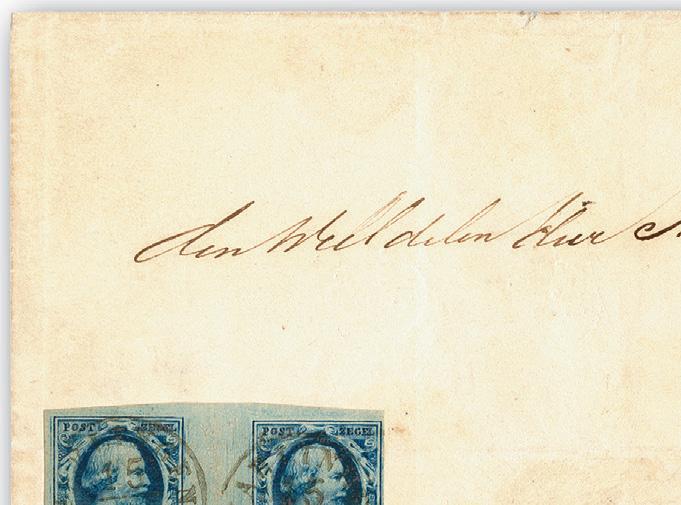 den Well edelen Heer
POST ZEGEL POST ZEGEL
15